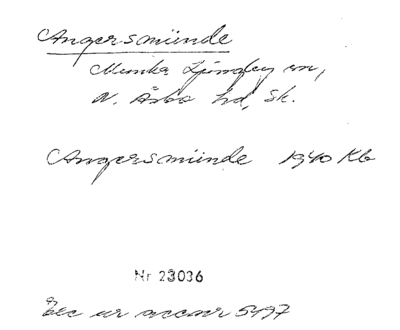 Angersmünde
Munka Ljungby sn,
N. Åsbo hd, Sk.
Angersmünde 1940 Kb
Nr 23036
ur accnr 5497